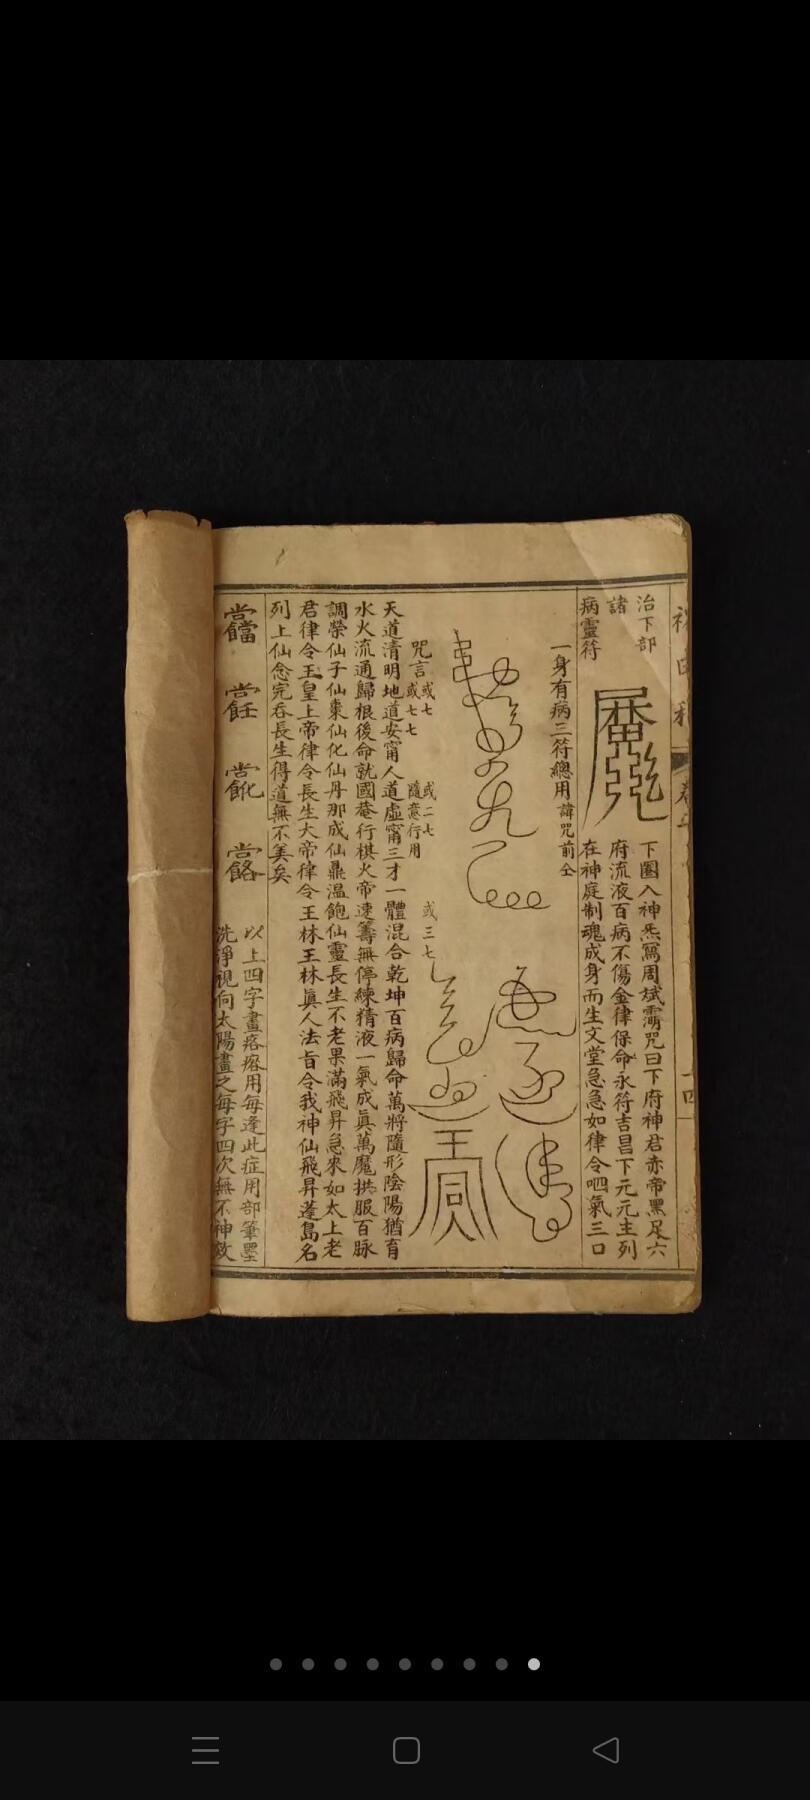 治下部
諸
病靈符
下圈入神炁寫周斌霛咒曰下府神君赤帝黑足六
府流液百病不傷金律保命永符吉昌下元元主列
在神庭制魂成身而生文堂急急如律令呬氣三口
一身有病三符總用諱咒前仝
咒言或七或七七 或二七隨意行用 或三七
天道清明地道安甯人道虛甯三才一體混合乾坤百病歸命萬將隨形陰陽猶育
水火流通歸根後命就國菴行棋火帝速籌無停練精液一氣成眞萬魔拱服百脉
調榮仙子仙棗仙化仙丹那成仙鼎溫飽仙靈長生不老果滿飛昇急來如太上老
君律令玉皇上帝律令長生大帝律令王林王林眞人法旨令我神仙飛昇蓬島名
列上仙念完吞長生得道無不美矣
以上四字畫用每逢此症用部筆墨
洗淨視向太陽畫之每字四次無不神效